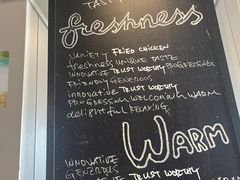 TASTY
freshness
VARIETY FRIED CHICKEN
freshness UNIQUE TASTE
INNOVATIVE TRUST WORTHY PROGRESSING
FRIENDLY GENEROUS
innovative TRUST WORTHY
PROGRESSING WELCOMING WARM
delightful RELAXING
WARM
INNOVATIVE
GENEROUS
TRUST WORTHY